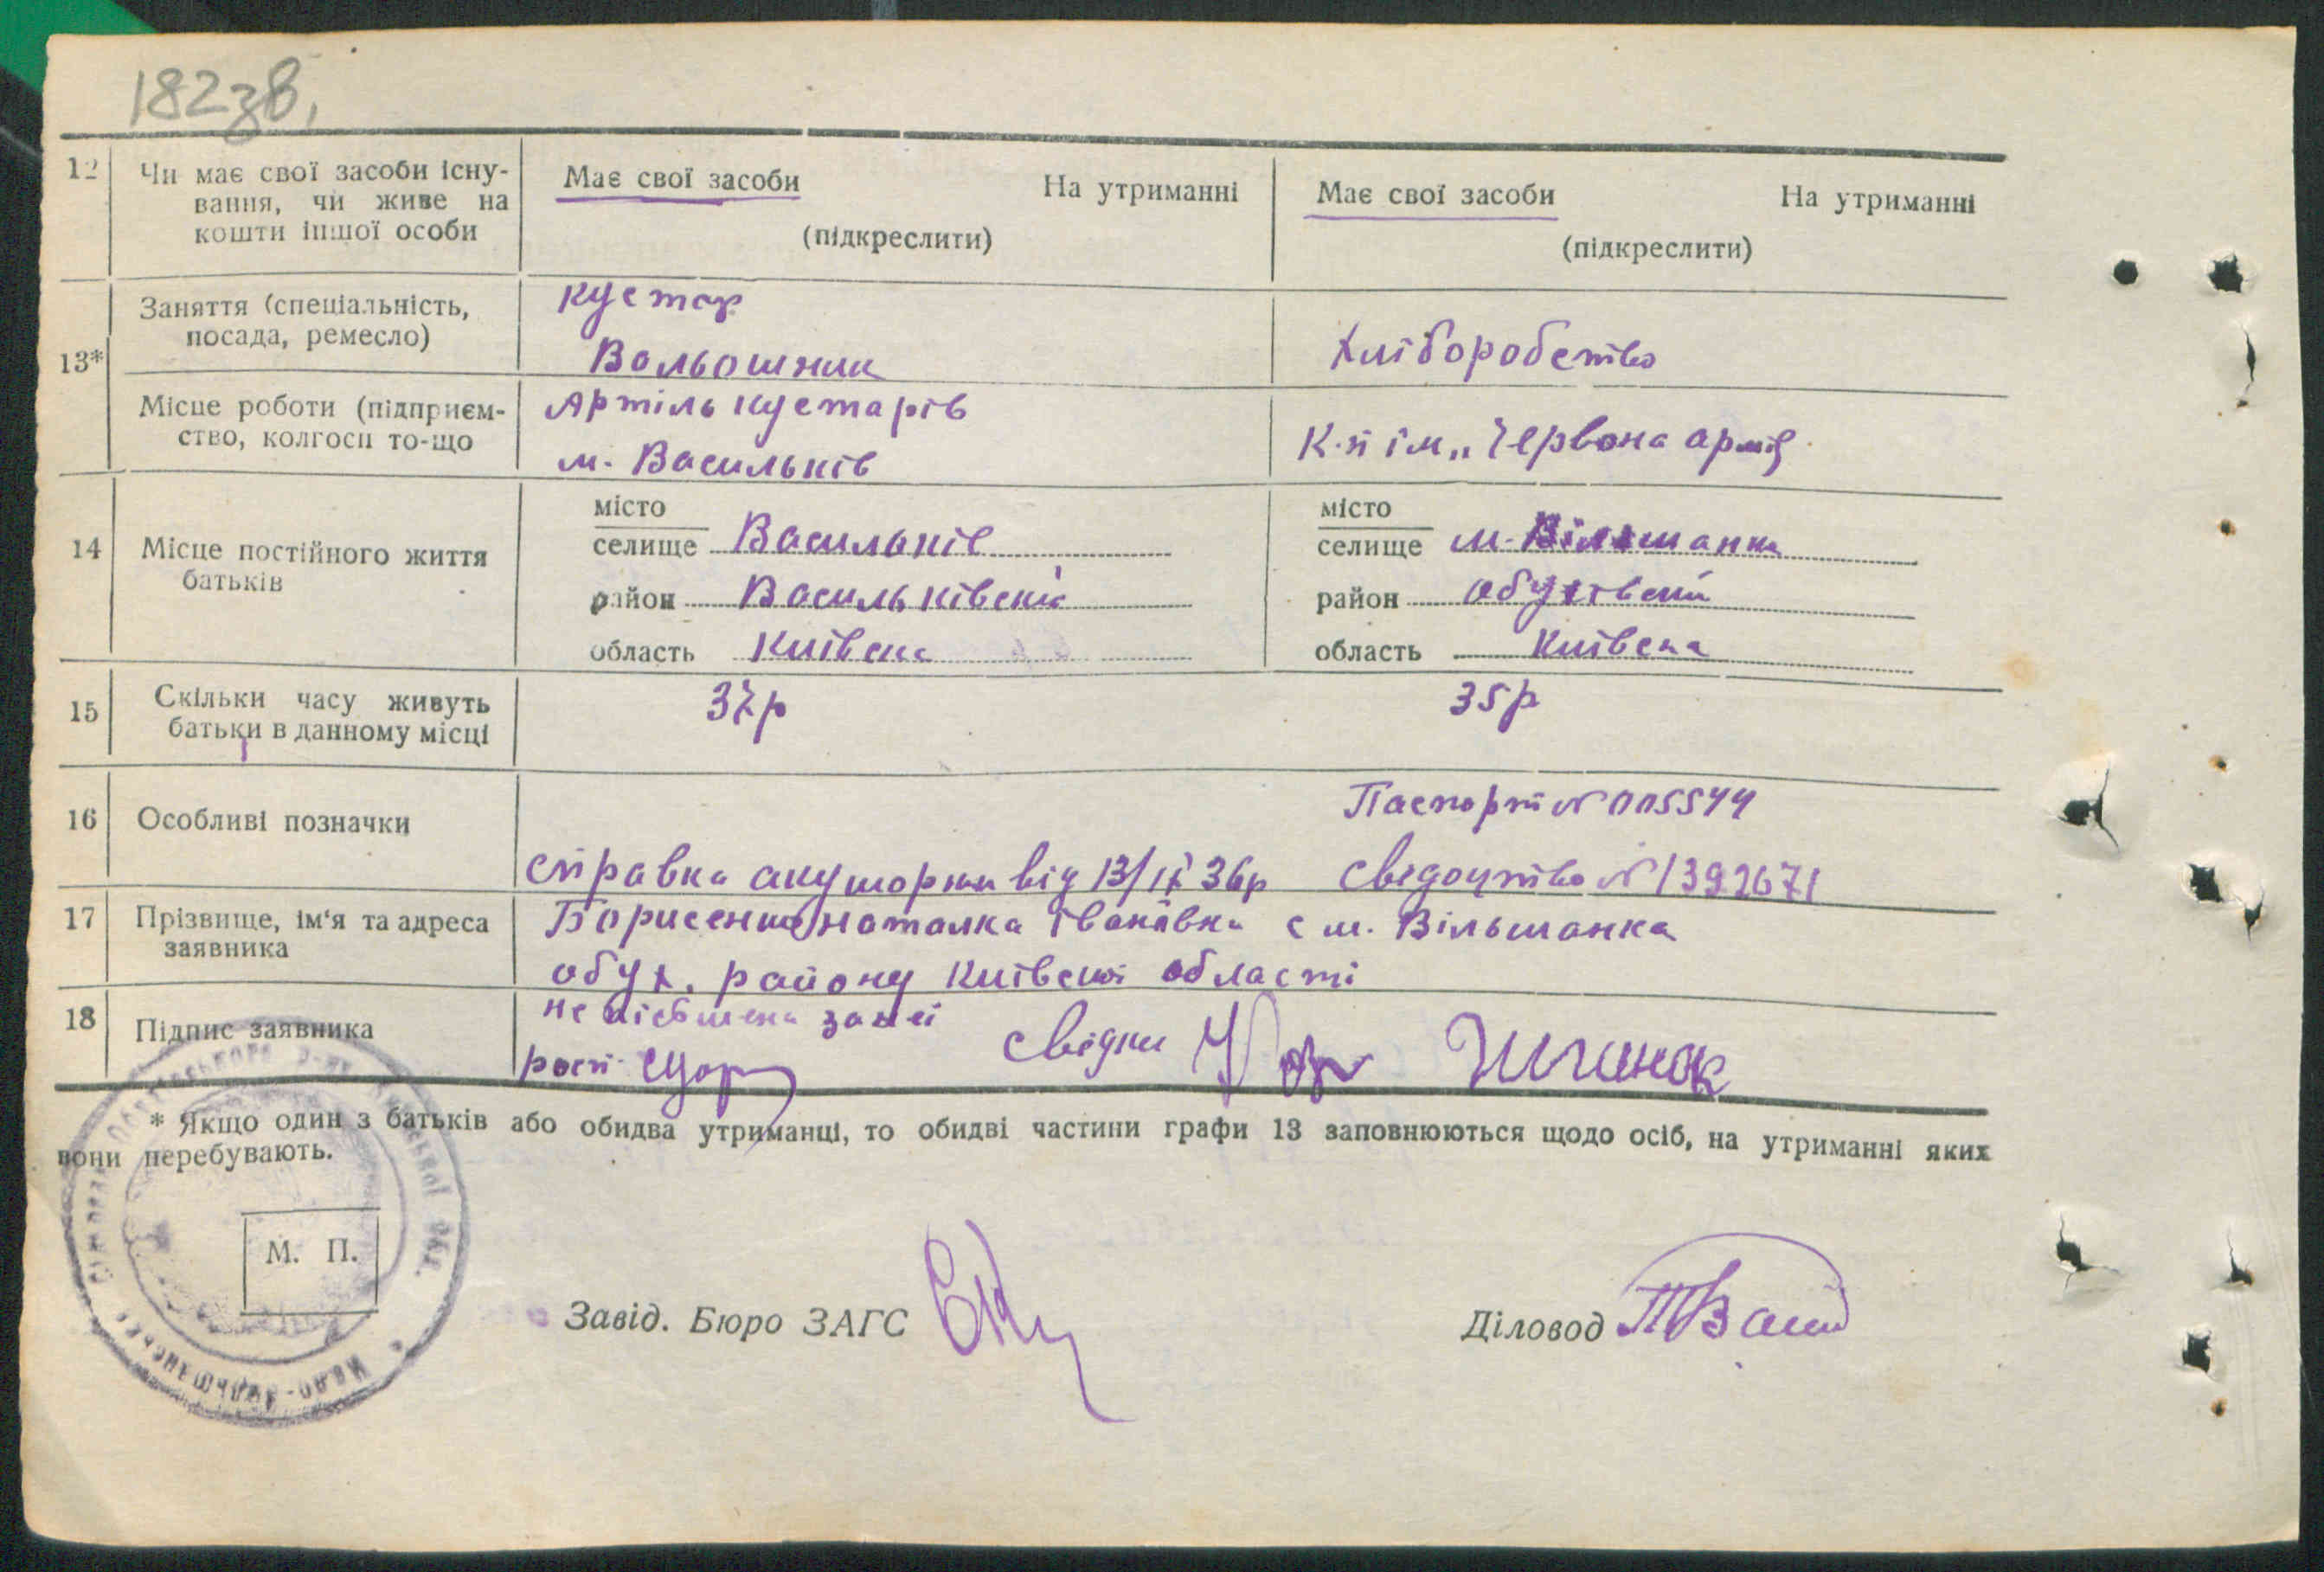 182зв,
12 Чи має свої засоби існу-
вання, чи живе на
кошти іншої особи
Має свої засоби На утриманні
(підкреслити)
Має свої засоби На утриманні
(підкреслити)
13*
Заняття (спеціальність,
посада, ремесло)
Кустар
Вальошник
Хліборобство
Місце роботи (підприєм-
ство, колгосп то-що
Артіль кустарів
м. Васильків
К-п ім „Червона армія
14 Місце постійного життя
батьків
місто
селище Васильків
район Васильківский
область Київска
місто
селище м. Вільшанка
район Обухівский
область Київска
15 Скільки часу живуть
батьки в данному місці
37р
35р
16 Особливі позначки
Паспорт № 005544
справка акушорки від 13/IX 36р свідоцтво № 1392671
17 Прізвище, ім'я та адреса
заявника
Борисенко Наталка Івановна с м. Вільшанка
обух. району Київскої області
18 Підпис заявника
за неї
рост свідки
* Якщо один з батьків або обидва утриманці, то обидві частини графи 13 заповнюються щодо осіб, на утриманні яких
вони перебувають.
М. П.
Завід. Бюро ЗАГС
Діловод